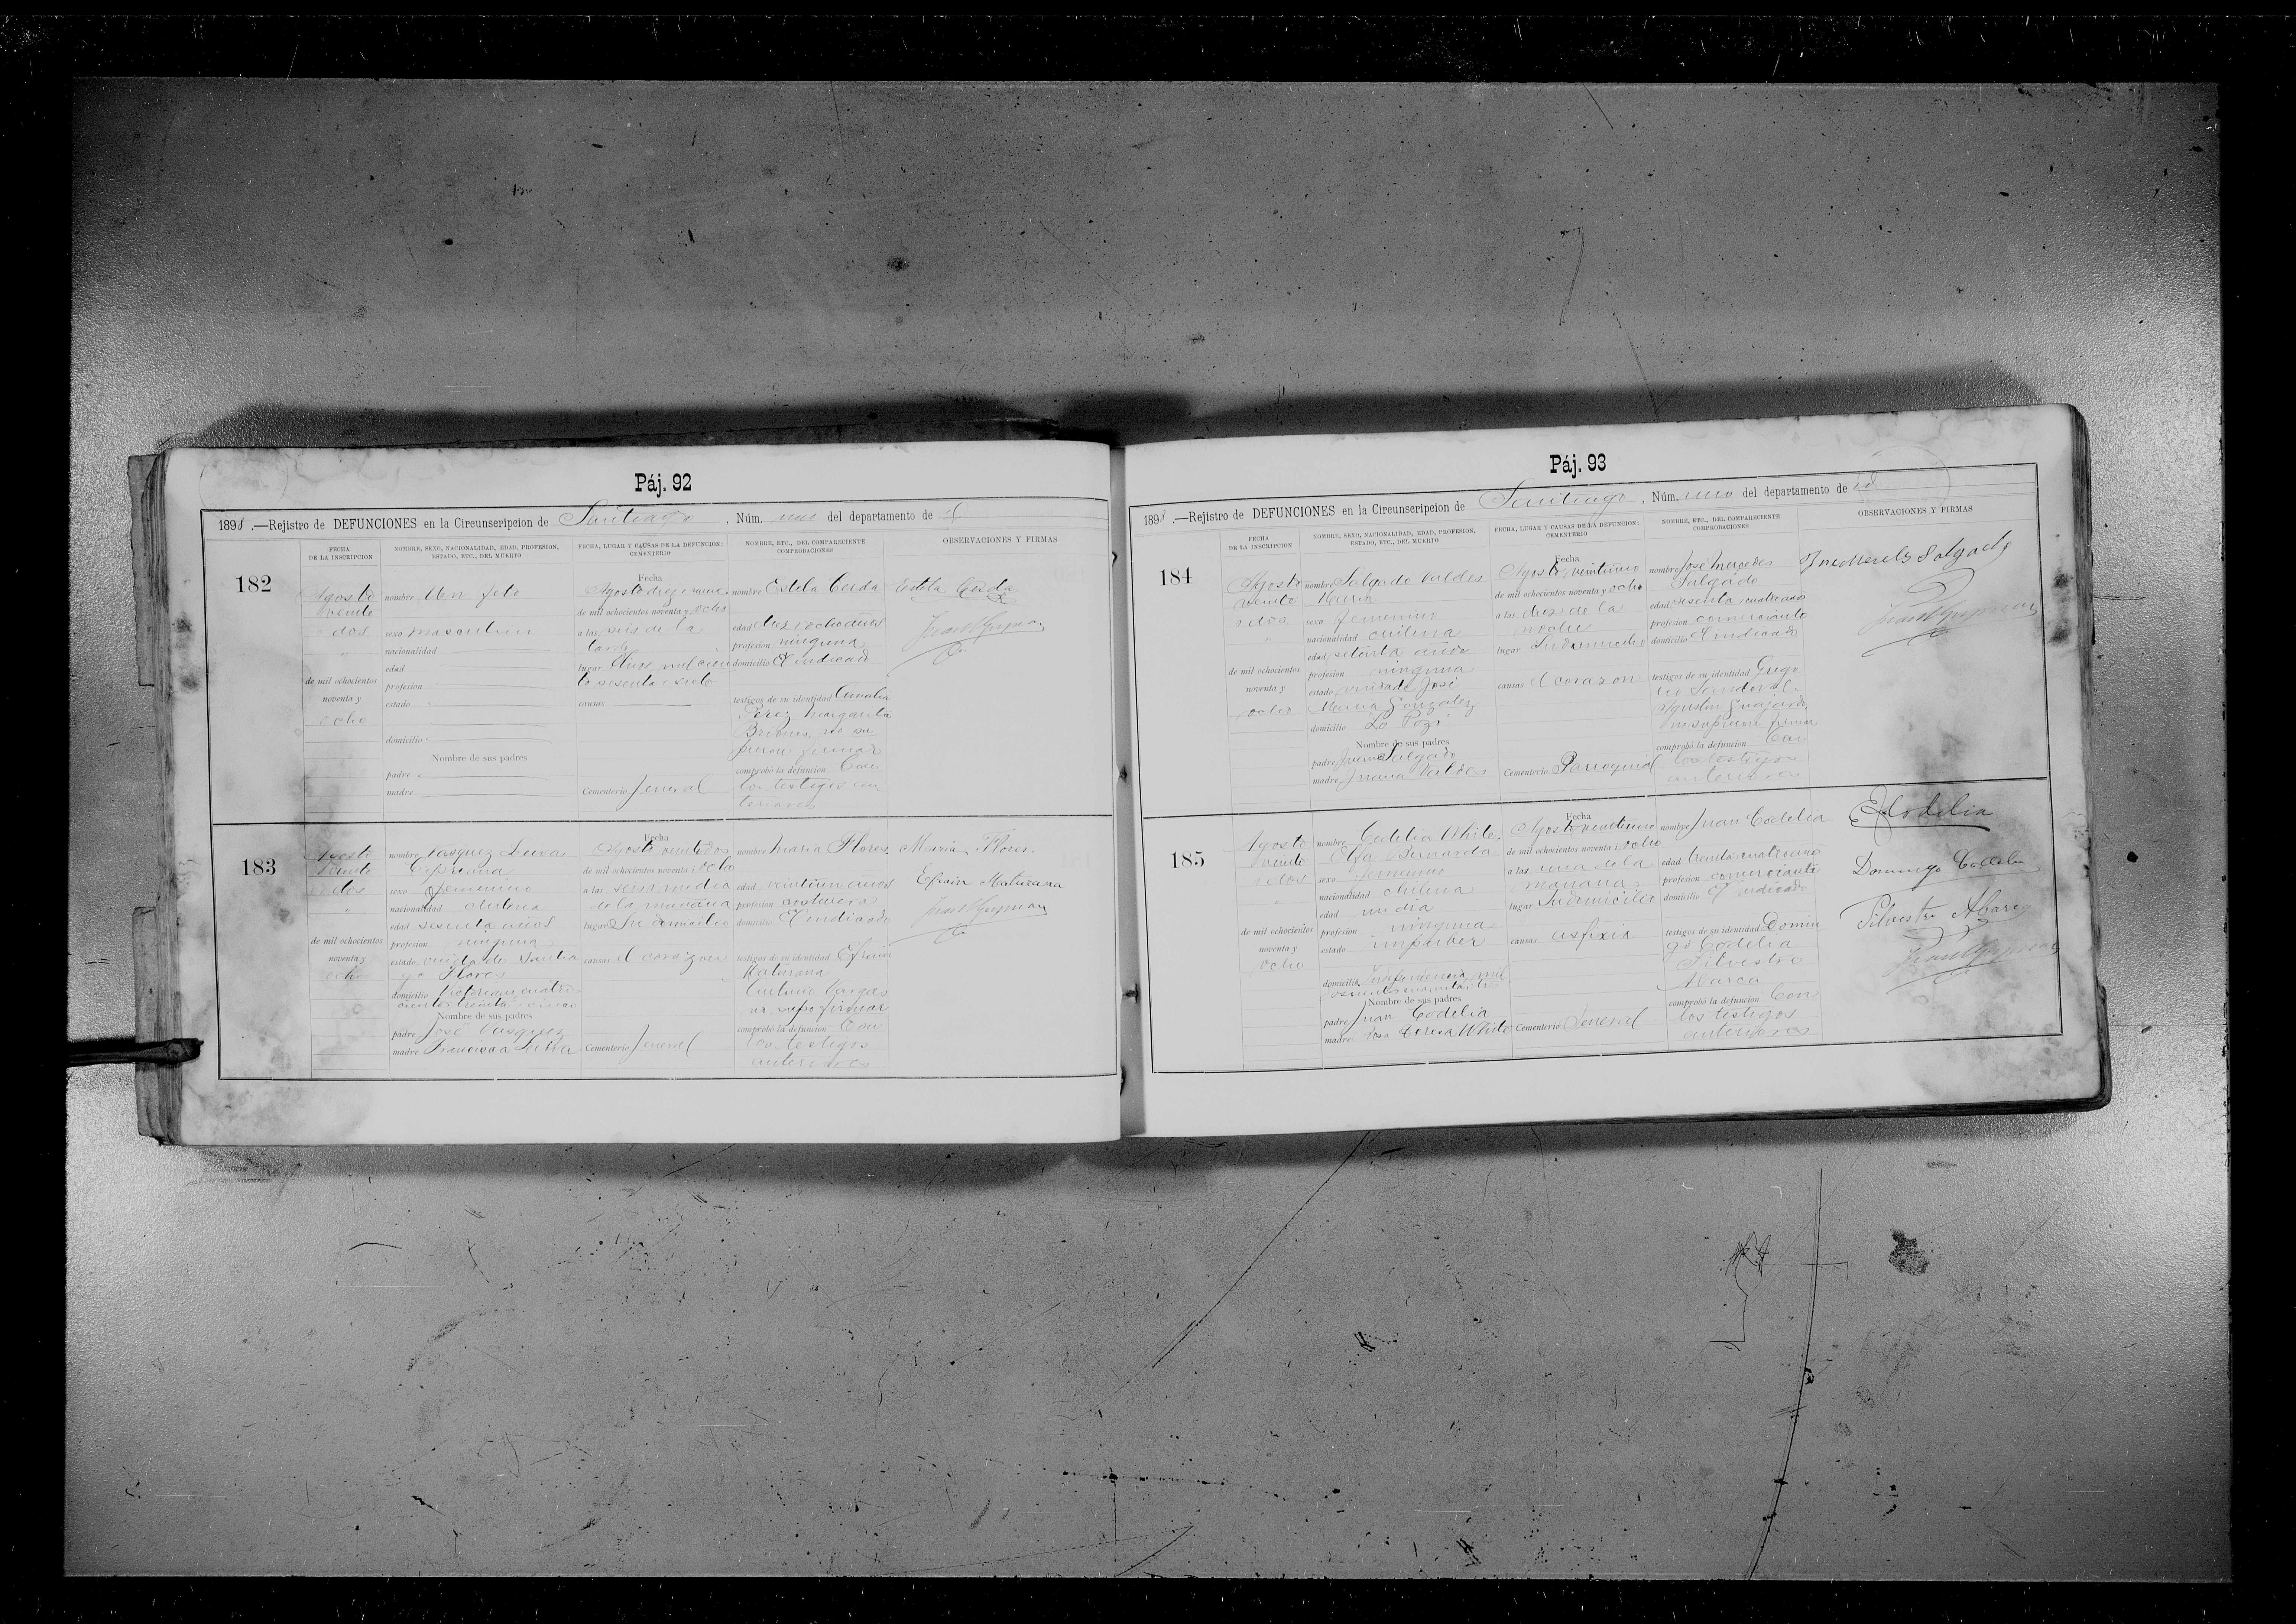 Páj. 92
1898.—Rejistro de DEFUNCIONES en la Circunscripcion de Santiago, Núm. uno del departamento de id
FECHA DE LA INSCRIPCION
NOMBRE, SEXO, NACIONALIDAD, EDAD, PROFESION, ESTADO, ETC., DEL MUERTO
FECHA, LUGAR Y CAUSAS DE LA DEFUNCION: CEMENTERIO
NOMBRE, ETC., DEL COMPARECIENTE COMPROBACIONES
OBSERVACIONES Y FIRMAS
182
Agosto
veinte
i dos
"
de mil ochocientos
noventa y
ocho
nombre Un feto
sexo masculino
nacionalidad
edad
profesion
estado
domicilio
Nombre de sus padres
padre
madre
Fecha
Agosto diez i nueve
de mil ochocientos noventa y ocho
a las seis de la
tarde
lugar mil cien
to sesenta i siete
causas
Cementerio Jeneral
nombre Estela Cerda
edad diez i ocho años
profesion ninguna
domicilio El indicado
testigos de su identidad
Perez Margarita
no su
pieron firmar
comprobó la defuncion Con
los testigos an
teriores
Estela Cerda
183
Agosto
veinte
i dos
"
de mil ochocientos
noventa y
ocho
nombre Vasquez Leiva
Cipriana
sexo femenino
nacionalidad chilena
edad sesenta años
profesion ninguna
estado viuda de Santia
go Flores
domicilio cuatro
cientos treinta i cinco
Nombre de sus padres
padre José Vasquez
madre Francisca Leiva
Fecha
Agosto veintidos
de mil ochocientos noventa y ocho
a las seis i media
de la mañana
lugar Su domicilio
causas el corazon
Cementerio Jeneral
nombre Maria Flores
edad veintiun años
profesion costurera
domicilio El indicado
testigos de su identidad Efrain
Maturana
Vargas
no supo firmar
comprobó la defuncion Con
los testigos
anteriores
Maria Flores
Efrain Maturana
Páj. 93
1898.—Rejistro de DEFUNCIONES en la Circunscripcion de Santiago, Núm. uno del departamento de id
FECHA DE LA INSCRIPCION
NOMBRE, SEXO, NACIONALIDAD, EDAD, PROFESION, ESTADO, ETC., DEL MUERTO
FECHA, LUGAR Y CAUSAS DE LA DEFUNCION: CEMENTERIO
NOMBRE, ETC., DEL COMPARECIENTE COMPROBACIONES
OBSERVACIONES Y FIRMAS
184
Agosto
veinte
i dos
"
de mil ochocientos
noventa y
ocho
nombre Salgado Valdes
Maria
sexo femenino
nacionalidad chilena
edad setenta años
profesion ninguna
estado viuda de José
Maria Gonzalez
domicilio
Nombre de sus padres
padre Juan Salgado
madre Juana Valdes
Fecha
Agosto veintiuno
de mil ochocientos noventa y ocho
a las diez de la
noche
lugar Su domicilio
causas el corazon
Cementerio Parroquial
nombre José Mercedes
Salgado
edad sesenta i cuatro años
profesion comerciante
domicilio El indicado
testigos de su identidad Grego
rio Sandoval
Agustin Guajardo
no supieron firmar
comprobó la defuncion Con
los testigos
anteriores
José Mercedes Salgado
185
Agosto
veinte
i dos
"
de mil ochocientos
noventa y
ocho
nombre Codelia White
Elsa Bernarda
sexo femenino
nacionalidad chilena
edad un dia
profesion ninguna
estado impúber
domicilio Independencia mil
Nombre de sus padres
padre Juan Codelia
madre Rosa Teresa White
Fecha
Agosto veintiuno
de mil ochocientos noventa y ocho
a las una de la
mañana
lugar Su domicilio
causas asfixia
Cementerio Jeneral
nombre Juan Codelia
edad treinta i cuatro años
profesion comerciante
domicilio El indicado
testigos de su identidad Domin
go Codelia
Silvestre
comprobó la defuncion Con
los testigos
anteriores
Codelia
Domingo Codelia
Silvestre